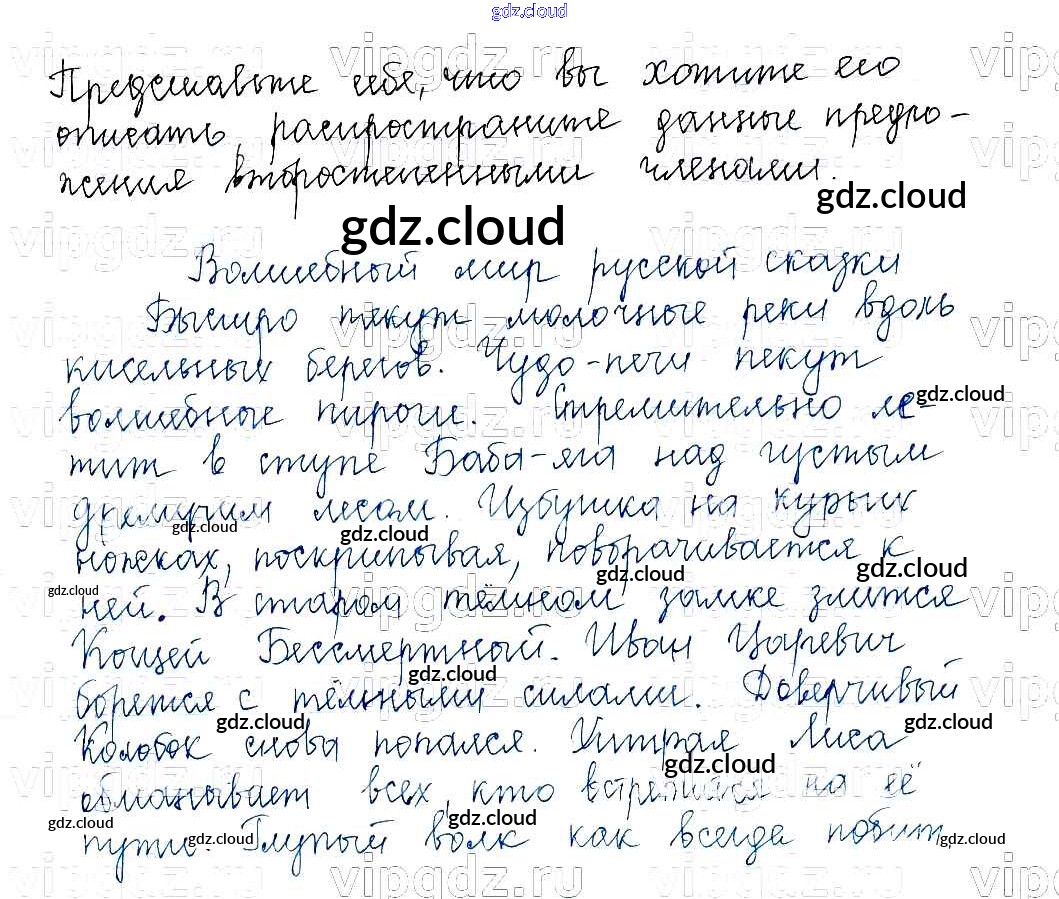 gdz.cloud
Представьте себе, что вы хотите его
описать, распространите данные предло-
жения второстепенными членами.
gdz.cloud
gdz.cloud
Волшебный мир русской сказки
Быстро текут молочные реки вдоль
кисельных берегов. Чудо-печи пекут
gdz.cloud
волшебные пироги. Стремительно ле-
тит в ступе Баба-яга над густым
дремучим лесом. Избушка на курьих
gdz.cloud
gdz.cloud
ножках, поскрипывая, поворачивается к
gdz.cloud
gdz.cloud
gdz.cloud
ней. В старом тёмном замке злится
Кощей Бессмертный. Иван Царевич
gdz.cloud
борется с тёмными силами. Доверчивый
gdz.cloud
gdz.cloud
Колобок снова попался. Хитрая Лиса
gdz.cloud
обманывает всех, кто встретился на её
gdz.cloud
gdz.cloud
пути. Глупый волк как всегда побит
gdz.cloud
gdz.cloud
vipgdz.ru